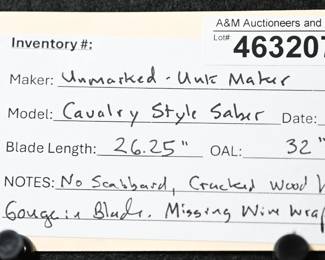 A&M Auctioneers and
Lot# 463207
Inventory #:
Maker: Unmarked - Unk Maker
Model: Cavalry Style Saber Date:
Blade Length: 26.25" OAL: 32"
NOTES: No Scabbard, Cracked Wood
Gouge in Blade. Missing Wire Wrap